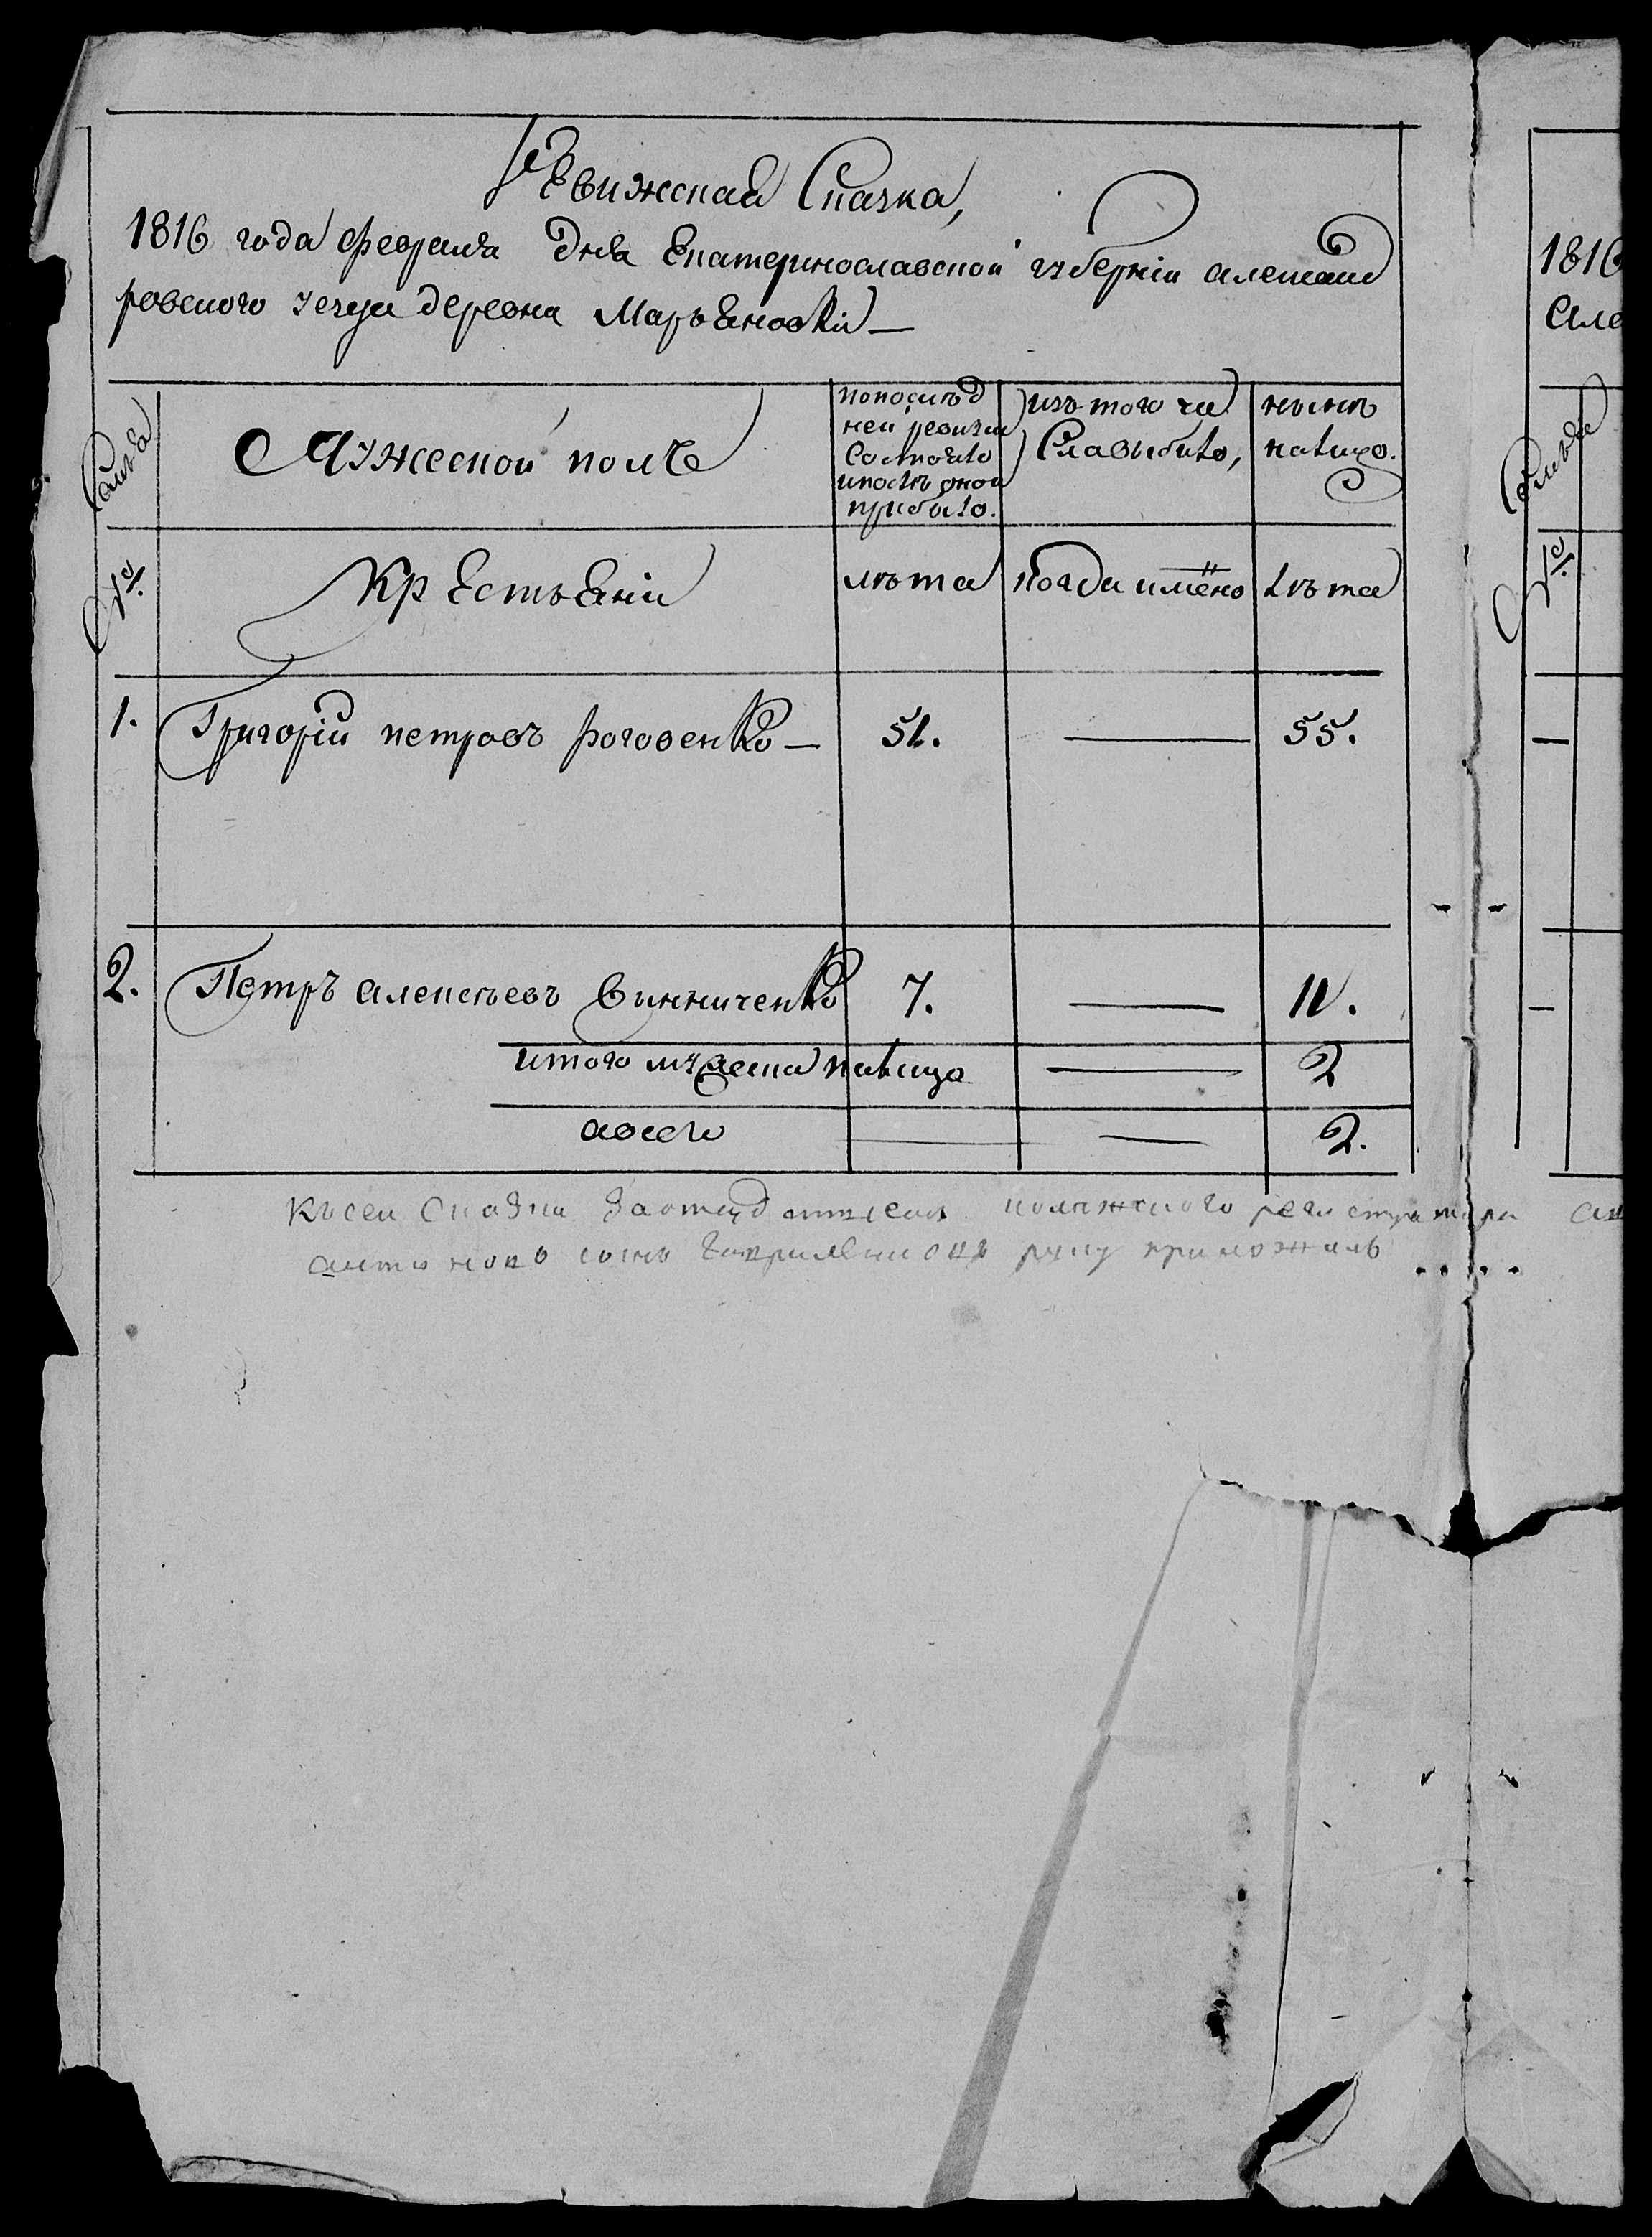 Ревижская Сказка,
1816 года февраля дня Екатеринославской губернїи александ
ровского уезда деревна Маръяновки
Семъя
Мужеской полъ
попослѣд
ней ревизи
Состояло
ипослѣ оной
прибыло.
изъ того чи
Сла выбыло,
нынѣ
налицо.
№
Крестьяни
лѣта
когда имено
лѣта
1.
Григорїй петровъ роговенко
51.
55.
2.
Петръ алексѣевъ винниченко
7.
11.
итого мужеска налицо
2
авсего
2.
Ксей Сказки регистратора
антоновъ сынъ руку приложилъ
1816
Але
Семъя
№